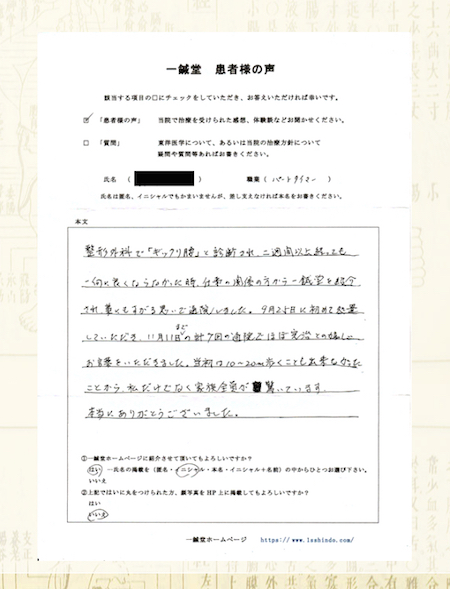 一鍼堂 患者様の声
該当する項目の□にチェックをしていただき、お答えいただければ幸いです。
☑ 「患者様の声」 当院で治療を受けられた感想、体験談などお聞かせください。
□ 「質問」 東洋医学について、あるいは当院の治療方針について
疑問や質問等あればお書きください。
氏名 ( ) 職業 ( パートタイマー )
氏名は匿名、イニシャルでもかまいませんが、差し支えなければ本名をお書きください。
本文
整形外科で「ギックリ腰」と診断され、二週間以上経っても
一向に良くならなかった時、仕事の関係の方から一鍼堂を紹介
され、藁にもすがる思いで通院しました。9月25日に初めて処置
していただき、11月11日までの計7回の通院でほぼ完治との嬉しい
お言葉をいただきました。当初は10〜20m歩くことも出来なかった
ことから、私だけでなく家族全員が驚いています。
本当にありがとうございました。
①一鍼堂ホームページに紹介させて頂いてもよろしいですか?
はい ―氏名の掲載を（匿名・イニシャル・本名・イニシャル+名前）の中からひとつお選び下さい。
いいえ
②上記ではいに丸をつけられた方、顔写真をHP上に掲載してもよろしいですか?
はい
いいえ
一鍼堂ホームページ https://www.1sshindo.com/